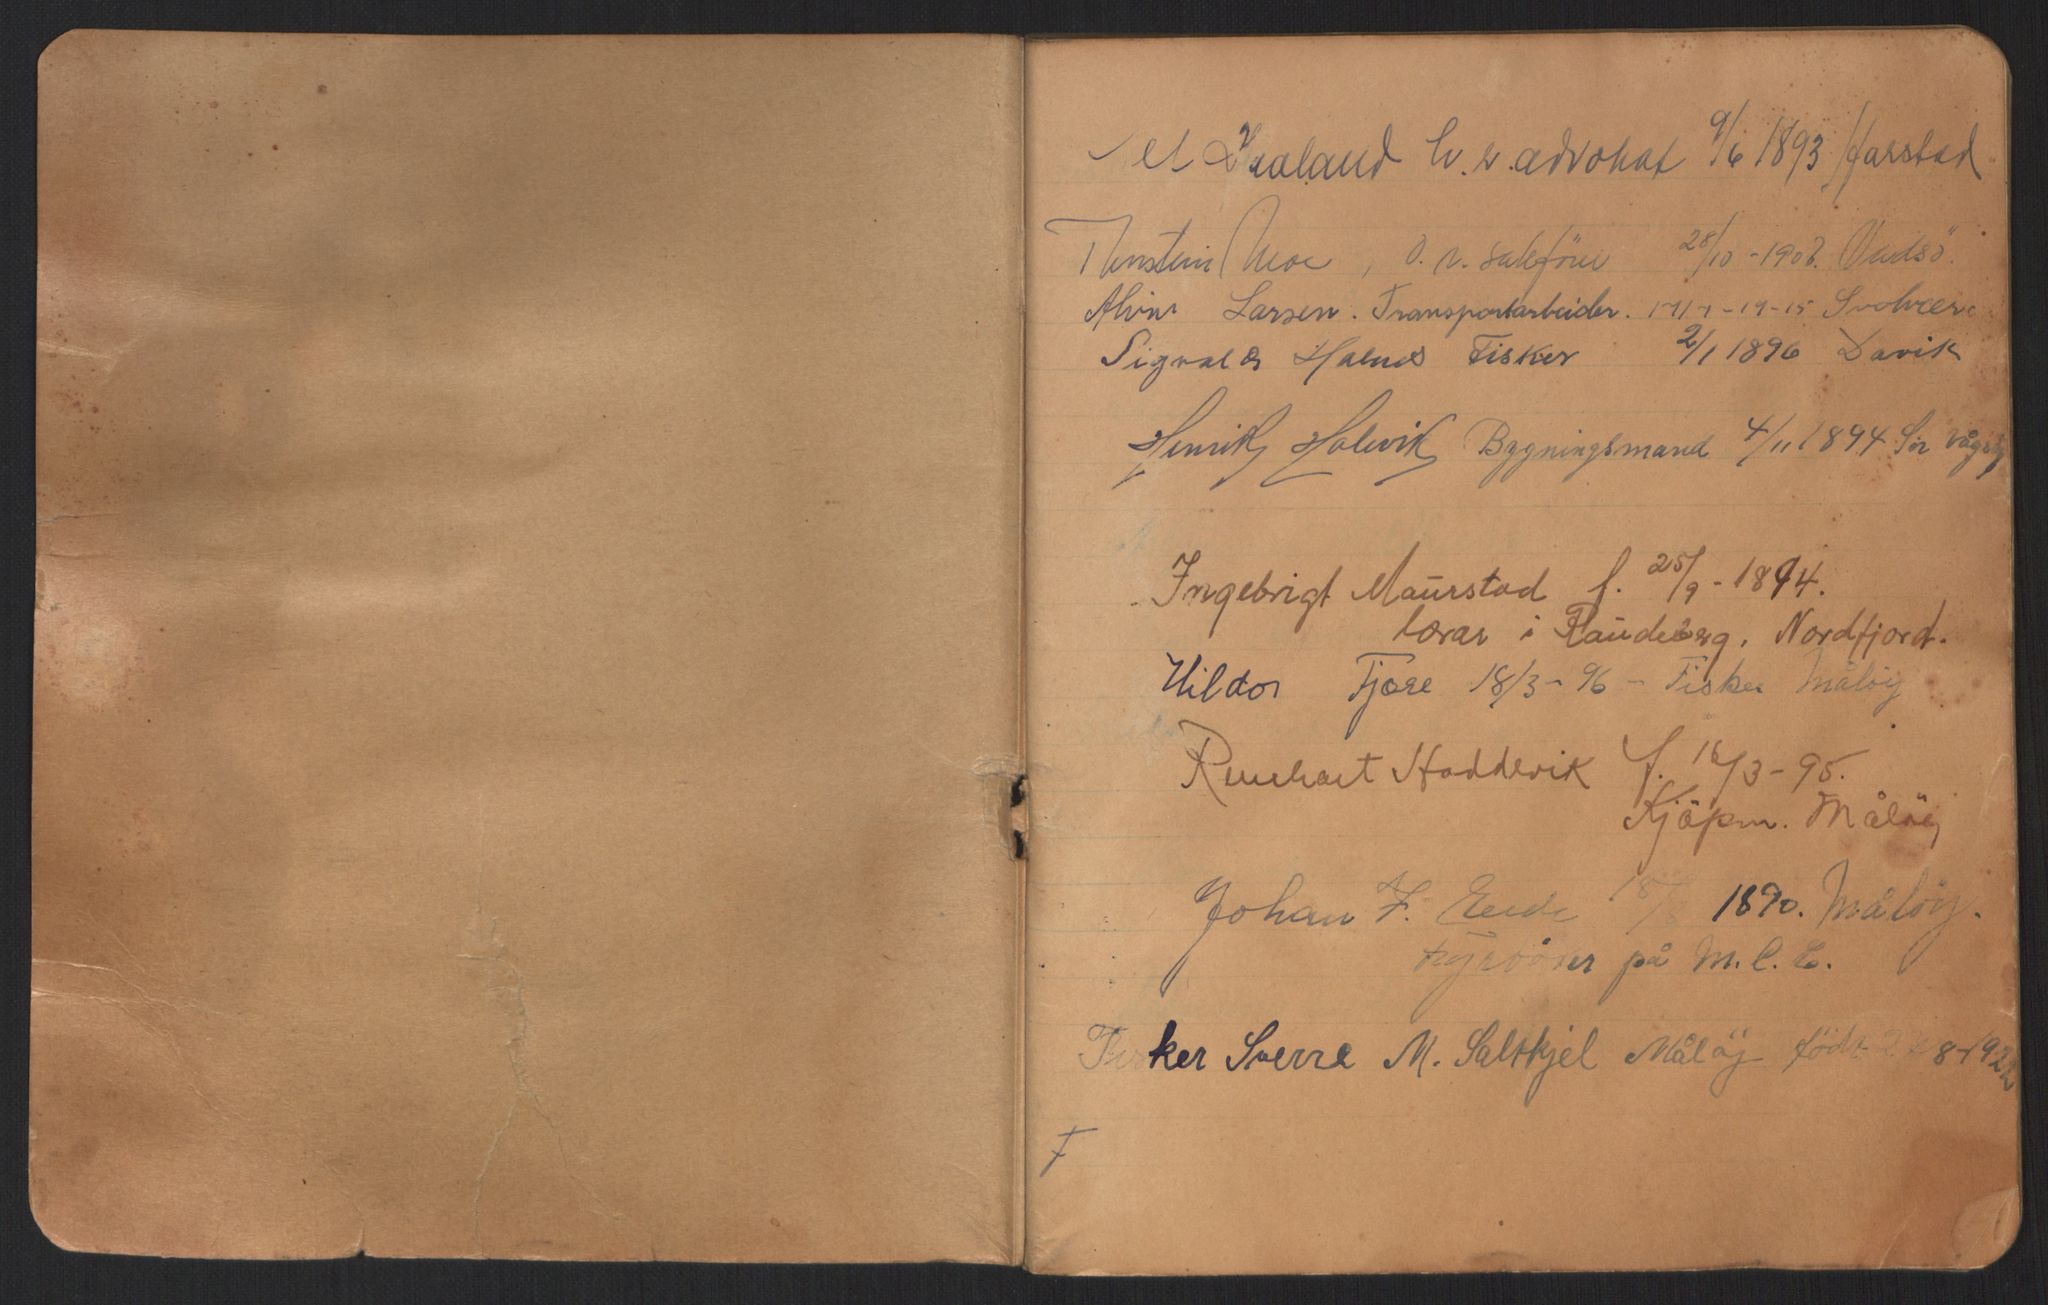 h.r. advokat 9/6 1893 Harstad
Moe, O.r. sakförer 28/10-1906. Vadsö.
Alvin Larsen. Transportarbeider. Svolvær.
Sigvald Fisker 2/1 1896 Davik
Henrik Halsvik Bygningsmand 4/11 1894 Sör Vågsöy
Ingebrigt Maurstad f. 25/9-1894.
lærar i Raudeberg, Nordfjord.
Hildor Fjære 18/3-96 - Fisker Målöy
Reinhart Hoddevik f. 16/3-95.
Kjöpm. Målöy
Johan F. Eide 1890. Målöy.
på M.C.E.
Fisker Sverre M. Saltkjel Målöy född 8-1922
F